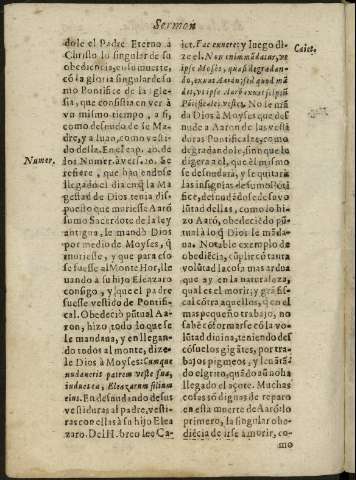 Sermon
dole el Padre Eterno à
Christo lo singular de su
obediencia, en su muerte,
cō la gloria singular de su
mo Pontifice de la Igle-
sia, que consistia en ver à
vn mismo tiempo, a si,
como desnudo de se Ma-
dre, y a Iuan, como vesti-
do della. En el cap. 20. de
Numer.
dos Numer. à vers. 20. Se
refiere, que hauiendose
llegado el dia en q̃ la Ma
gestad de Dios tenia dis-
puesto que muriesse Aarō
sumo Sacerdote de la ley
antigua, le mandò Dios
por medio de Moyses, q̃
muriesse, y que para esto
se fuesse al Monte Hor, lle
uando a su hijo Eleazaro
consigo, y que el padre
fuesse vestido de Pontifi-
cal. Obedeciò pūtual Aa-
ron, hizo todo lo que se
le mandaua, y en llegan-
do todos al monte, dize-
le Dios à Moyses: Cumque
nudaueris patrem veste sua,
indues ea, Eleazarum filium
eius. En desnudando de sus
vestiduras al padre, vesti-
ras con ellas à su hijo Eleaz
zaro. Del Hebreo lee Ca-
iet. Fac exuere: y luego di-
Caiet.
ze el. Non enim mādatur, vt
ipse Moses, quasi degradan-
do, exuat Aarō; sed quod mā
det, vt ipse Aarō exuat se ipsū
Pōtificales vestes. No le mā
da Dios à Moyses que des-
nude a Aaron de las vesti
duras Pontificales, como
degradandole, sino que lo
diga era el, que èl mismo
se desnudarà, y se quitarà
las insignias de sumo Pōti
fice, desnudādose de su vo
lūtad dellas, como lo hi-
zo Aarō, obedeciēdo pū-
tual à lo q̃ Dios le māda-
ua. Notable exemplo de
obediēcia, cūplir cō tanta
volūtad la cosa mas ardua
que ay en la naturaleza,
qual es el morir; y grā Fis-
cal cōtra aquellos, q̃ en el
mas pequeño trabajo, no
sabē cōformarse cō la vo-
lūtad diuina, teniendo des
cōsuelos gigātes, por tra-
bajos pigmeos, y leuātā-
do el grito, quādo aū no ha
llegado el açote. Muchas
cosas sō dignas de reparo
en esta muerte de Aarō: lo
primero, la singular obe-
diēcia de irse à morir, co-
mo